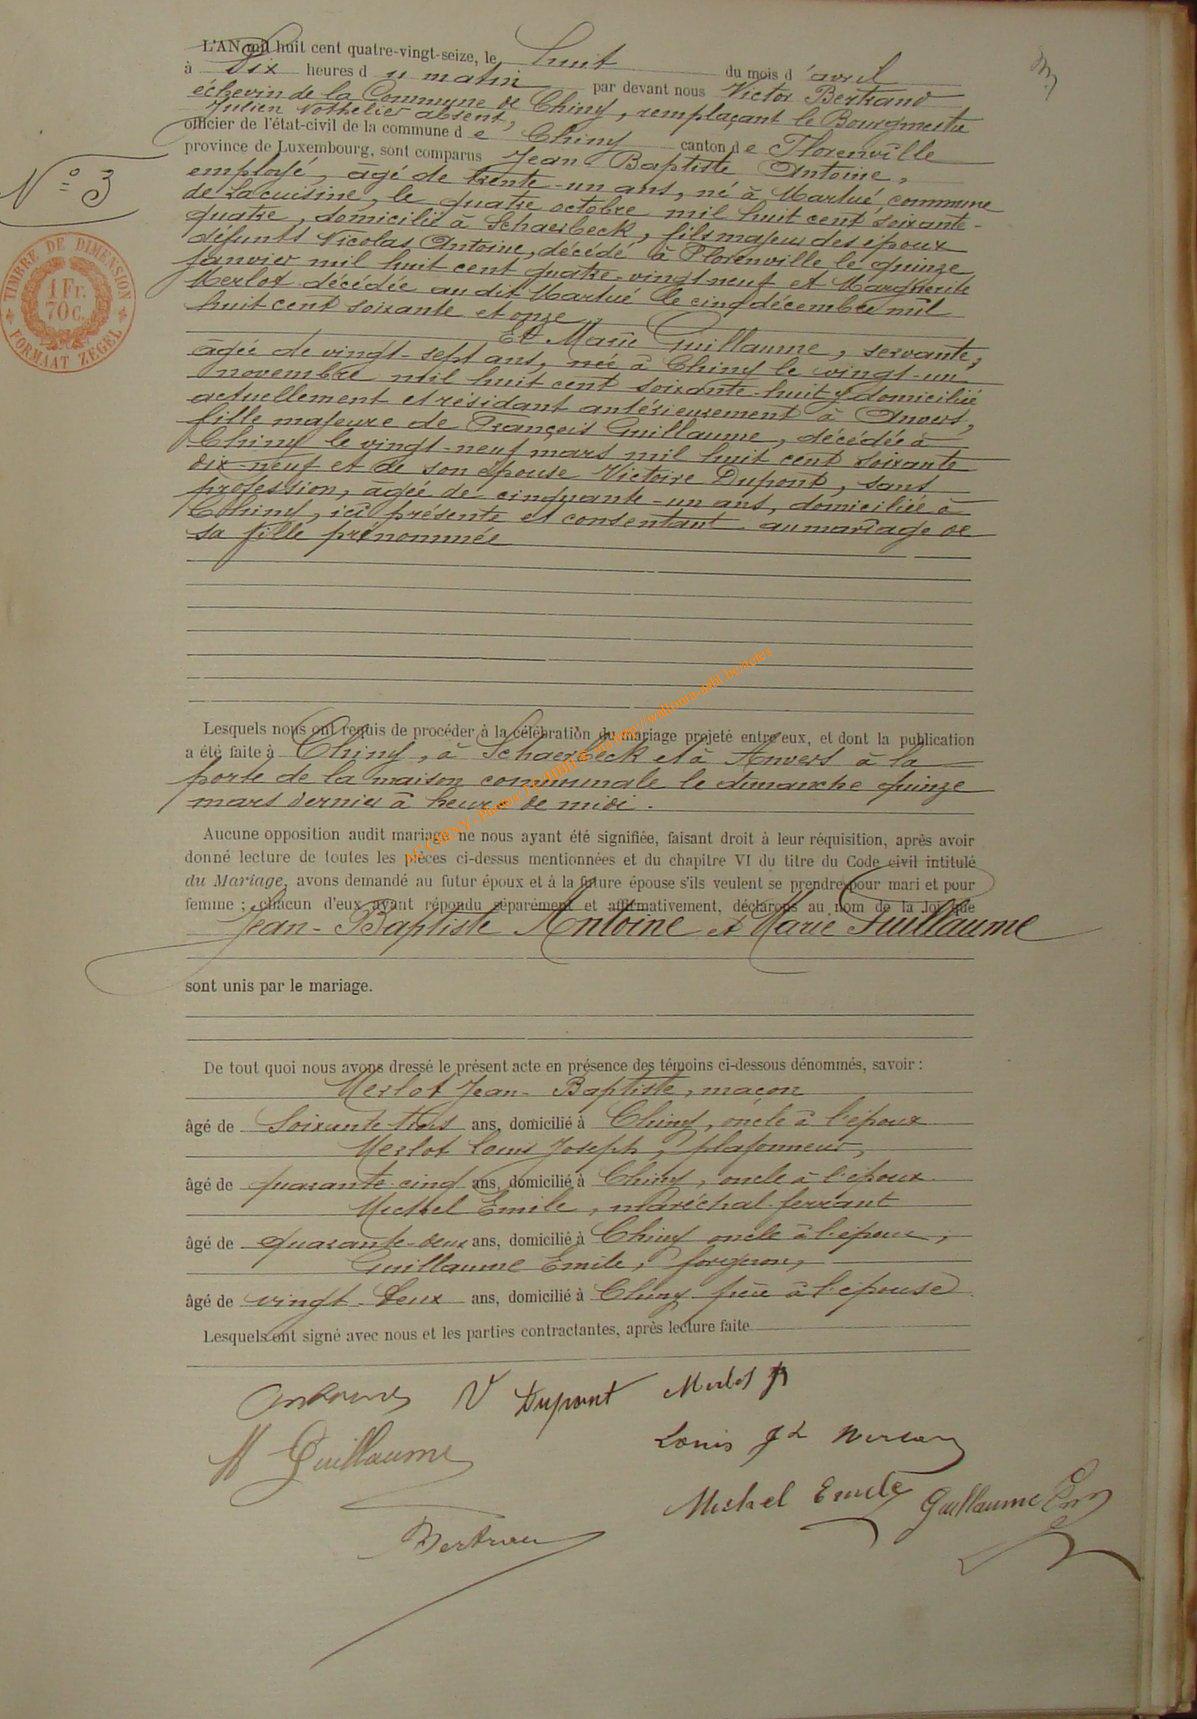 L'AN mil huit cent quatre-vingt-seize, le huit du mois d'avril
à Dix heures du matin par devant nous Victor Bertrand
échevin de la Commune de Chiny, remplaçant le Bourgmestre
Julien Nothelier absent,
officier de l'état-civil de la commune de Chiny canton de Florenville
province de Luxembourg, sont comparus Jean Baptiste Antoine,
employé, âgé de trente-un ans, né à Martué, commune
de Lacuisine, le quatre octobre mil huit cent soixante-
quatre, domicilié à Schaerbeck, fils majeur des époux
défunts Nicolas Antoine, décédé à Florenville le quinze
janvier mil huit cent quatre-vingt neuf et Marguerite
Merlot décédée au dit Martué le cinq décembre mil
huit cent soixante et onze
Et Marie Guillaume, servante,
âgée de vingt-sept ans, née à Chiny le vingt-un
novembre mil huit cent soixante-huit y domiciliée
actuellement et résidant antérieurement à Anvers,
fille majeure de François Guillaume, décédée à
Chiny le vingt-neuf mars mil huit cent soixante
dix-neuf et de son épouse Victoire Dupont, sans
profession, âgée de cinquante-un ans, domiciliée à
Chiny, ici présente et consentant au mariage de
sa fille prénommée
N° 3
TIMBRE DE DIMENSION
1 Fr.
70 C.
FORMAAT ZEGEL
Lesquels nous ont requis de procéder à la célébration du mariage projeté entre eux, et dont la publication
a été faite à Chiny, à Schaerbeck et à Anvers à la
porte de la maison communale le dimanche quinze
mars dernier à heure de midi.
Aucune opposition audit mariage ne nous ayant été signifiée, faisant droit à leur réquisition, après avoir
donné lecture de toutes les pièces ci-dessus mentionnées et du chapitre VI du titre du Code civil intitulé
du Mariage, avons demandé au futur époux et à la future épouse s'ils veulent se prendre pour mari et pour
femme ; chacun d'eux ayant répondu séparément et affirmativement, déclarons au nom de la loi que
Jean-Baptiste Antoine et Marie Guillaume
sont unis par le mariage.
De tout quoi nous avons dressé le présent acte en présence des témoins ci-dessous dénommés, savoir :
Merlot Jean-Baptiste, maçon
âgé de Soixante trois ans, domicilié à Chiny, oncle à l'époux
Merlot Louis Joseph, plafonneur,
âgé de quarante-cinq ans, domicilié à Chiny, oncle à l'époux
Michel Emile, maréchal ferrant
âgé de quarante-deux ans, domicilié à Chiny oncle à l'époux,
Guillaume Emile, forgeron,
âgé de vingt-deux ans, domicilié à Chiny frère à l'épouse
Lesquels ont signé avec nous et les parties contractantes, après lecture faite
Antoine V Dupont Merlot
M Guillaume Louis Jh
Michel Emile Guillaume Em
Bertrand